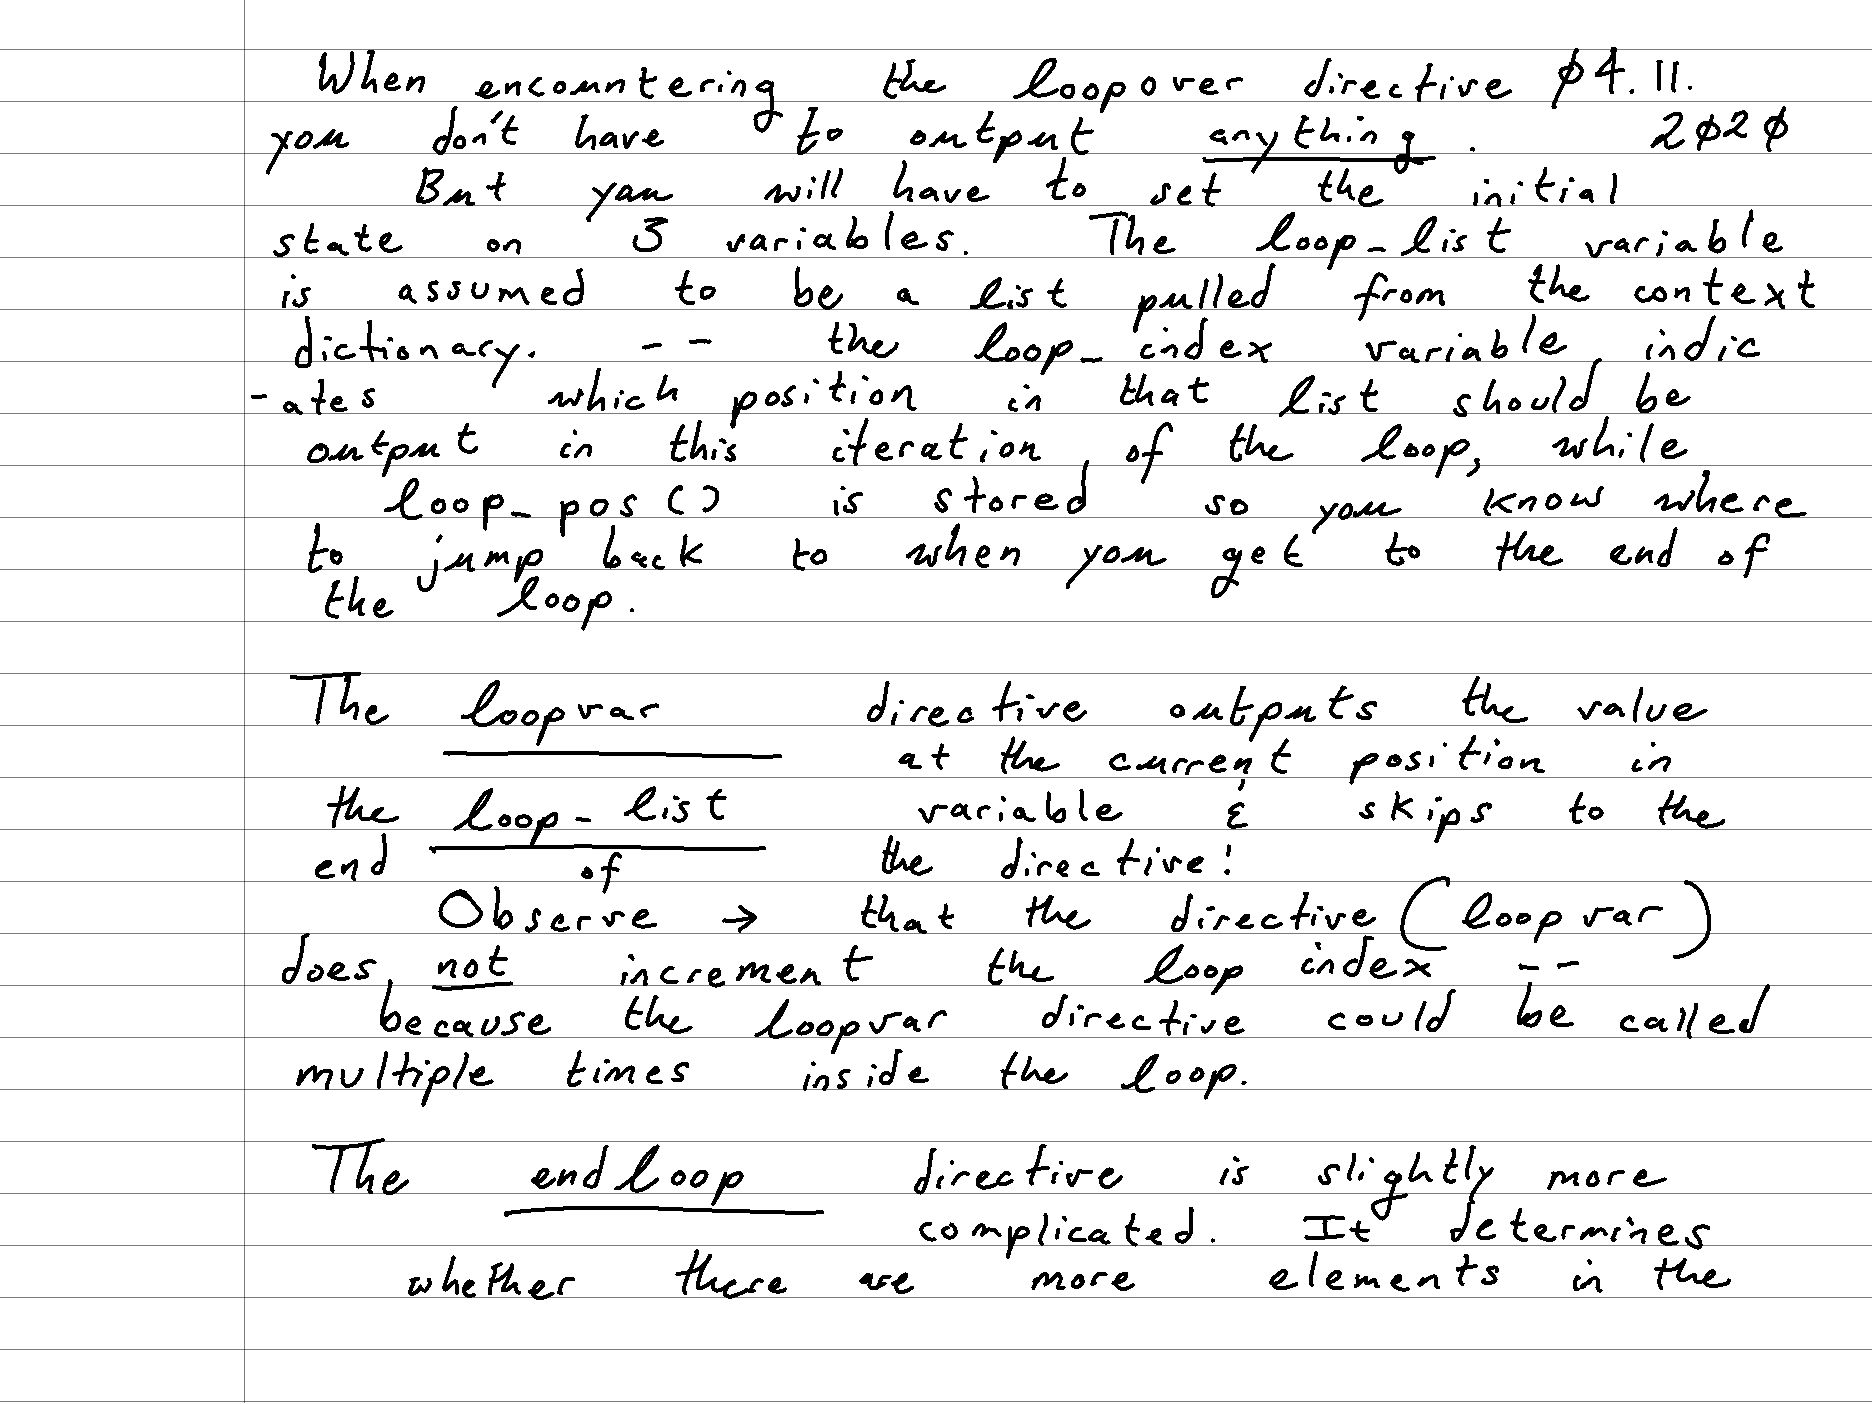 When encountering the loopover directive ø4.11.
you don't have to output anything. 2ø2ø
But you will have to set the initial
state on 3 variables. The loop_list variable
is assumed to be a list pulled from the context
dictionary. -- the loop_index variable indic
-ates which position in that list should be
output in this iteration of the loop, while
loop_pos() is stored so you know where
to jump back to when you get to the end of
the loop.
The loopvar directive outputs the value
at the current position in
the loop_list variable & skips to the
end of the directive!
Observe → that the directive (loopvar)
does not increment the loop index --
because the loopvar directive could be called
multiple times inside the loop.
The endloop directive is slightly more
complicated. It determines
whether there are more elements in the